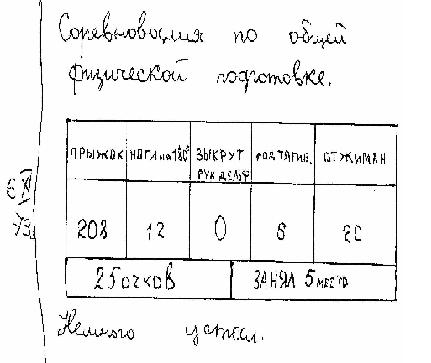 Соревнования по общей
физической подготовке.
ПРЫЖОК НОГИ на 180° ВЫКРУТ подтягив. ОТЖИМАН
РУК ДЕЛЬФ
203 12 0 6 20
25 очков ЗАНЯЛ 5 место
Немного устал.